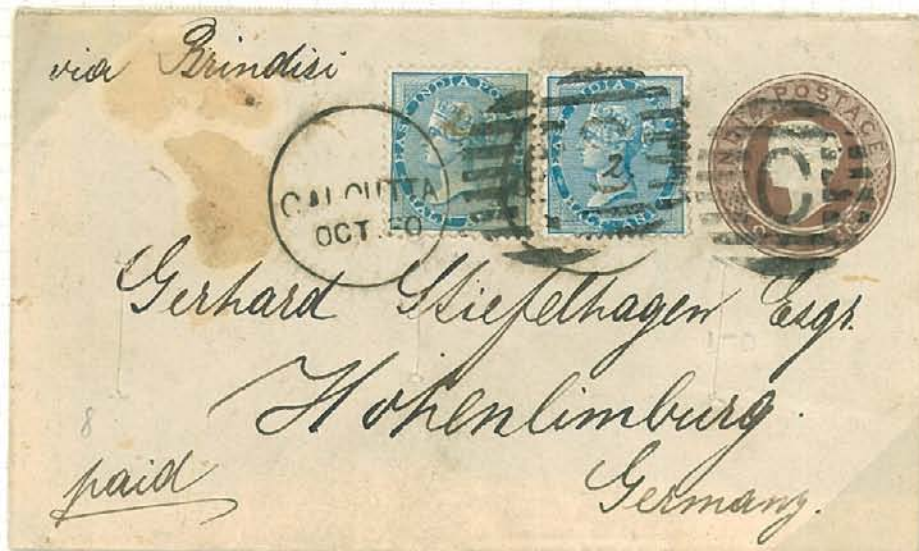 via Brindisi
EAST INDIA POSTAGE
HALF
EAST INDIA POSTAGE
HALF ANNA
INDIA POSTAGE
C
CALCUTTA
OCT.
Gerhard Stiefelhagen Esqr.
Hohenlimburg.
8
paid
Germany.